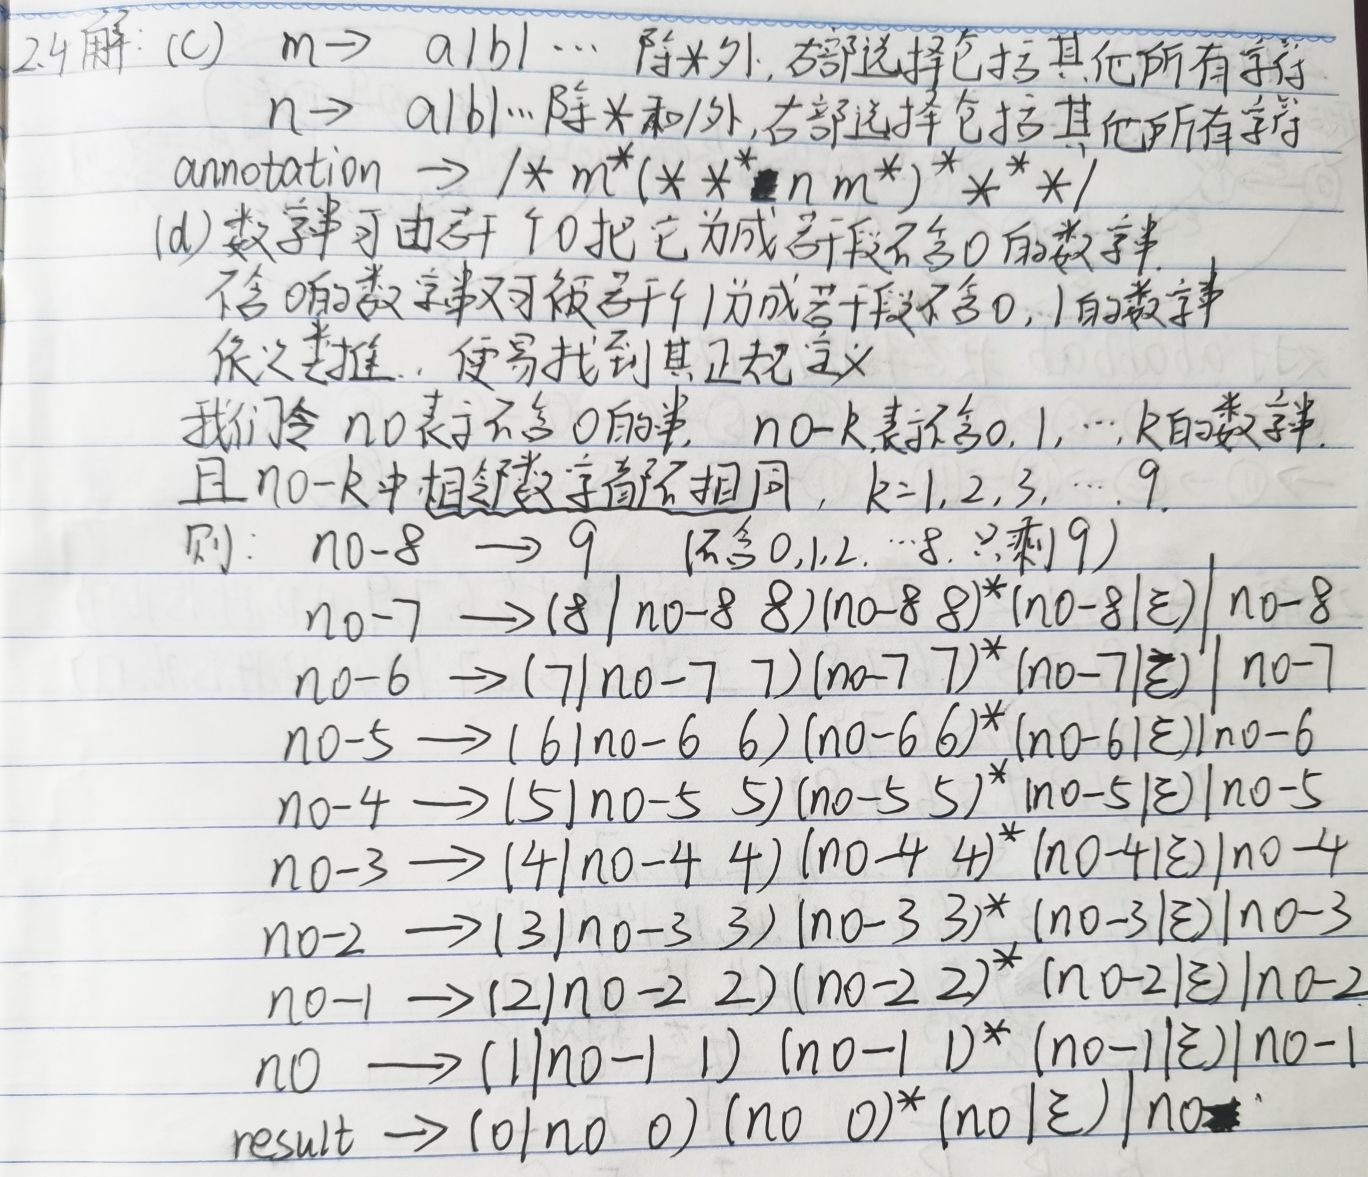 2.4解: (c) m→ a|b|… 除*外,右部选择包括其他所有字符
n→ a|b|…除*和/外,右部选择包括其他所有字符
annotation → /* m*(* ** n m*)* * * */
(d) 数字串可由若干个0把它分成若干段不含0的数字串.
不含0的数字串又可被若干个1分成若干段不含0,1的数字串
依次类推.. 便易找到其正规定义
我们令 no表示不含0的串, no-k表示不含0,1,…,k的数字串.
且no-k中相邻数字都不相同, k=1,2,3,…,9.
则: no-8 → 9 (不含0,1,2.…8.只剩9)
no-7 →(8|no-8 8)(no-8 8)*(no-8|ε)|no-8
no-6 →(7|no-7 7)(no-7 7)*(no-7|ε)|no-7
no-5 →(6|no-6 6)(no-6 6)*(no-6|ε)|no-6
no-4 →(5|no-5 5)(no-5 5)*(no-5|ε)|no-5
no-3 →(4|no-4 4)(no-4 4)*(no-4|ε)|no-4
no-2 →(3|no-3 3)(no-3 3)*(no-3|ε)|no-3
no-1 →(2|no-2 2)(no-2 2)*(no-2|ε)|no-2
no →(1|no-1 1)(no-1 1)*(no-1|ε)|no-1
result →(0|no 0)(no 0)*(no|ε)|no